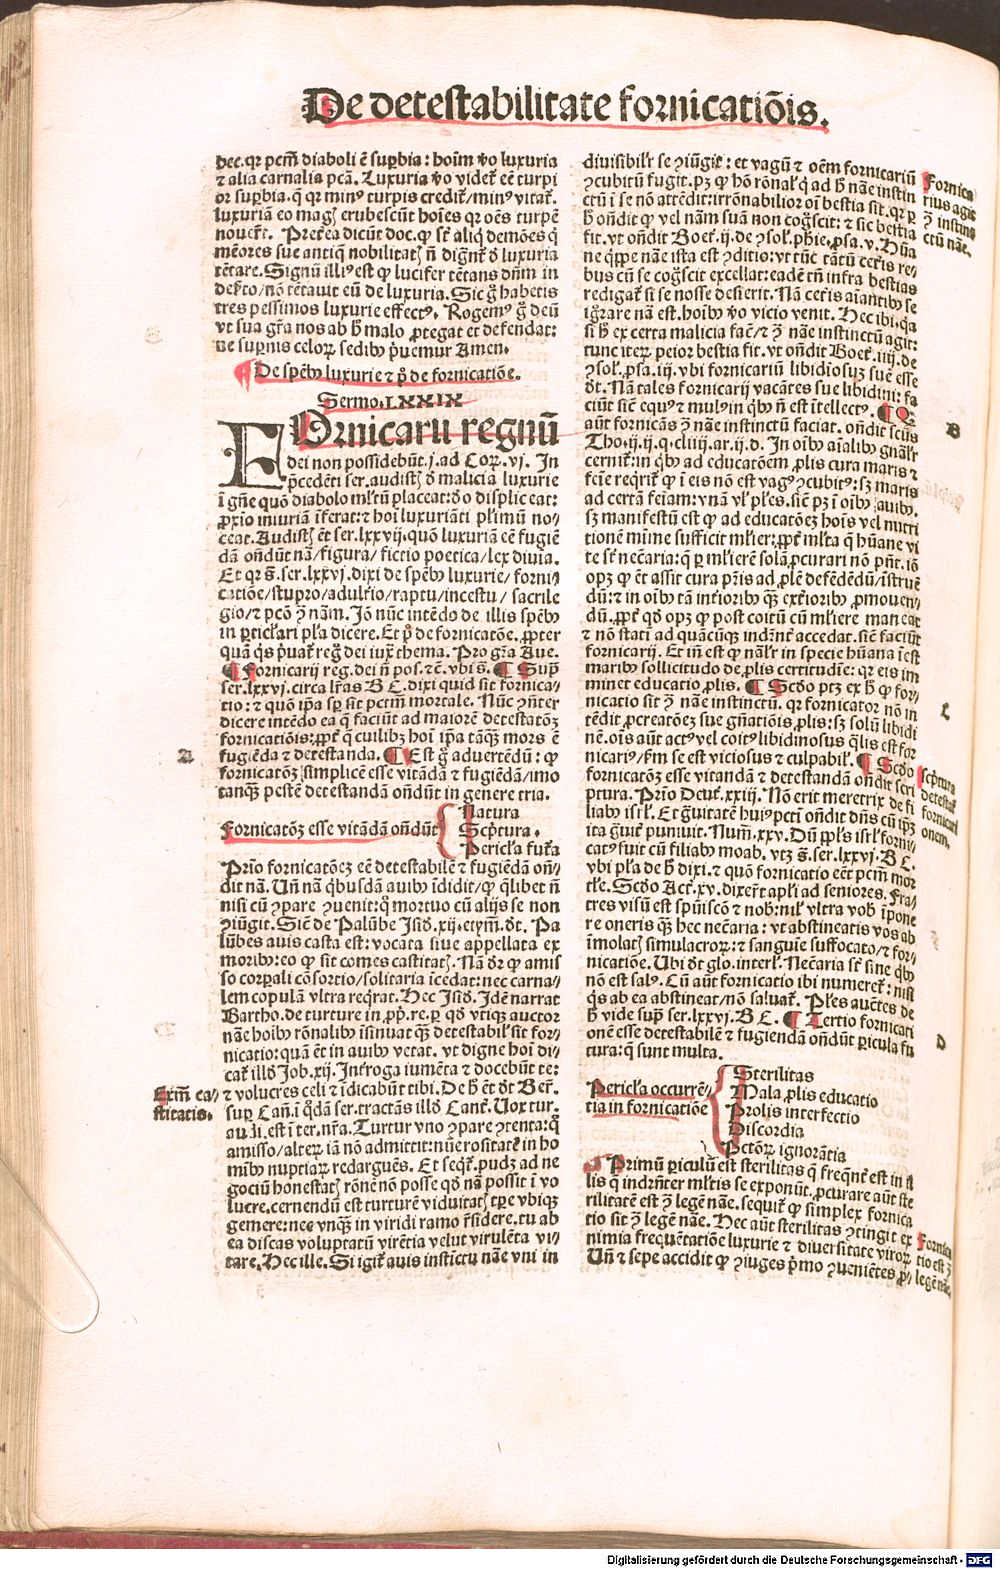 De detestabilitate fornicatiōis.
dec. qr pctm̄ diaboli ē sup̱bia: hoīm ꝟo luxuria
⁊ alia carnalia pctā. Luxuria ꝟo videt᷑ eē turpi
or sup̱bia. q̄ qr minꝰ turpis credit᷑ / minꝰ vitat᷑.
luxuriā eo magꝭ erubescūt hoīes qr oēs turpē
nouer̄t. Pret̄ea dicūt doc. ꝙ st̄ aliq̄ demōes q̄
mēores sue antiq̄ nobilitatꝭ nō dignēt᷑ ꝺ luxuria
tētare. Signū illiꝰ est ꝙ lucifer tētans dn̄m in
deßto / nō tētauit eū de luxuria. Sic g̊ habetis
tres pessimos luxurie effectꝰ. Rogemꝰ g̊ deū
vt sua gr̄a nos ab ħ malo ꝓtegat et defendat:
ne sup̱nis celoꝝ sedibꝰ p̄uemur Amen.
De spēbꝰ luxurie ⁊ pͦ de fornicatiōe.
Sermo. LXXIX
FOrnicarii regnū
dei non possidebūt. j. ad Coꝝ. vj. In
p̄cedēti ser. audistꝭ ꝺ malicia luxurie
ī gn̄e quō diabolo ml̄tū placeat: ꝺo displiceat:
ꝓxīo iniuriā īferat: ⁊ hoī luxuriāti pl̄imū no⸗
ceat. Audistꝭ ēt ser. lxxvij. quō luxuriā eē fugiē
dā oñdūt nā / figura / fictio poetica / lex diuīa.
Et qr s̄. ser. lxxvj. dixi de spēbꝰ luxurie / forni⸗
catiōe / stupro / adult̄io / raptu / incestu / sacrile
gio / ⁊ pctō ꝯ̄ nām. Jō nūc intēdo de illis spēbꝰ
in p̱ticl̄ari pl̄a dicere. Et pͦ de fornicatōe. ꝓpter
quā q̄s p̄uat᷑ reg̊ dei iux̄ thema. Pro gr̄a Aue.
¶ Fornicarij reg. dei nō pos. ⁊c̄. vbi s̄. ¶ Sup̱
ser. lxxvj. circa lr̄as B C. dixi quid sit fornica⸗
tio: ⁊ quō ip̄a sꝑ sit pctm̄ mortale. Nūc ꝯn̄ter
dicere intēdo ea q̄ faciūt ad maiorē detestatōꝫ
fornicatiōis: ꝓpt̄ q̄ cuilibꝫ hoī ip̄a tāqꝫ mors ē
fugiēda ⁊ detestanda. ¶ Est g̊ aduertēdū: ꝙ
fornicatōꝫ simplicē esse vitādā ⁊ fugiēdā / imo
tanqꝫ pestē detestandā oñdūt in genere tria.
Fornicatōꝫ esse vitādā oñdūt
Natura
Scp̄tura.
Pericl̄a fut̄a
Prīo fornicatōeꝫ eē detestabilē ⁊ fugiēdā oñ⸗
dit nā. Uñ nā q̄busdā auibꝰ īdidit / ꝙ q̄libet nō
nisi cū ꝯpare ꝯuenit: q̊ mortuo cū alijs se non
ꝯiūgit. Sic̄ de Palūbe Jsid. xij. etym̄. ꝺt. Pa
lūbes auis casta est: vocata siue appellata ex
moribꝰ: eo ꝙ sit comes castitatꝭ. Nā ꝺr ꝙ amis
so corꝑali cōsortio / solitaria īcedat: nec carna⸗
lem copulā vltra req̄rat. Hec Jsid. Jdē narrat
Bartho. de turture in ꝓp̄. re. ꝑ qd̄ vtiqꝫ auctor
nāe hoībꝰ rōnalibꝰ īsinuat qꝫ detestabil᷑ sit for⸗
nicatio: quā ēt in auibꝰ vetat. vt digne hoī di⸗
cat᷑ illd̄ Job. xij. Int̄roga iumēta ⁊ docebūt te:
⁊ volucres celi ⁊ īdicabūt tibi. De ħ ēt ꝺt Ber̄.
sup̱ Can. ī q̄dā ser. tractās illd̄ Cant̄. Uox tur.
au. ī est ī ter. nr̄a. Turtur vno ꝯpare ꝯtenta: q̊
amisso / alteꝝ iā nō admittit: nūerositatē in ho
mībꝰ nuptiaꝝ redarguēs. Et seqr̄. pudꝫ ad ne
gociū honestatꝭ rōnē nō posse qd̄ nā possit ī vo
lucre. cernendū est turturē viduitatꝭ tꝑe vbiqꝫ
gemere: nec vnqꝫ in viridi ramo r̄sidere. tu ab
ea discas voluptatū virētia velut virulēta vi⸗
tare. Hec ille. Si igit᷑ auis instīctu nāe vni in
A
Exm̄ ca⸗
stitatis.
diuisibil᷑r se ꝯiūgit: et vagū ⁊ oēm fornicariū
ꝯcubitū fugit. pꝫ ꝙ hō rōnal᷑ q̄ ad ħ nāe instin
ctū ī se nō attēdit: irrōnabilior oī bestia sit. qr ꝑ
ħ oñdit ꝙ vel nām suā non cogs̄cit: ⁊ sic bestia
fit. vt oñdit Boet̄. ij. de ꝯsol. ph̄ie. ꝓsa. v. Hūa
ne q̄ppe nāe ista est ꝯditio: vt tūc tātū cet̄is re⸗
bus cū se cogs̄cit excellat: eadē tn̄ infra bestias
redigat᷑ si se nosse desierit. Nā cet̄is aīantibꝰ se
igr̄are nā est. hoībꝰ ꝟo vicio venit. Hec ibi. qa
si ħ ex certa malicia facit / ⁊ ꝯ̄ nāe instinctū agit:
tunc iteꝝ peior bestia fit. vt oñdit Boet̄. iiij. de
ꝯsol. ꝓsa. iij. vbi fornicariū libidiosuꝫ suē esse
ꝺt. Nā tales fornicarij vacātes sue libidini: fa
ciūt sic̄ equꝰ ⁊ mulꝰ in q̄bꝰ nō est ītellectꝰ. ¶ Q̄
aūt fornicās ꝯ̄ nāe instinctū faciat. oñdit sctūs
Tho. ij. ij. q. cliiij. ar. ij. ꝺ. In oībꝰ aīalibꝰ gnāl᷑r
cernit᷑: in q̄bꝰ ad educatōem ꝓlis cura maris ⁊
feīe reqrit᷑ ꝙ ī eis nō est vagꝰ ꝯcubitꝰ: sꝫ maris
ad certā feīam: vnā vl̄ pl̄es. sic̄ pꝫ ī oībꝰ auibꝰ.
sꝫ manifestū est ꝙ ad educatōeꝫ hoīs vel nutri
tionē mīme sufficit ml̄ier: ꝓpt̄ ml̄ta q̄ hūane vi
te st̄ nec̄aria: q̄ ꝑ ml̄ierē solā ꝓcurari nō pn̄t. iō
opꝫ ꝙ ēt assit cura pr̄is ad ꝓlē defēdēdū / īstruē
dū: ⁊ in oībꝰ tā int̄ioribꝰ qꝫ ext̄ioribꝰ ꝓmouen⸗
dū. ꝓpt̄ qd̄ opꝫ ꝙ post coitū cū ml̄iere maneat
⁊ nō statī ad quācūqꝫ indn̄ēt᷑ accedat. sic̄ faciūt
fornicarij. Et iō est ꝙ nāl᷑r in specie hūana īest
maribꝰ sollicitudo de ꝓlis certitudīe: qr eis im
minet educatio ꝓlis. ¶ Scd̄o ptꝫ ex ħ ꝙ for⸗
nicatio sit ꝯ̄ nāe instinctū. qr fornicator nō in
tēdit ꝓcreatōeꝫ sue gn̄atiōis ꝓlis: sꝫ solū libidi
nē. oīs aūt actꝰ vel coitꝰ libidinosus q̄lis est for
nicariꝰ / ẜm se est viciosus ⁊ culpabil᷑. ¶ Scd̄o
fornicatōꝫ esse vitandā ⁊ detestandā oñdit scri
ptura. Prīo Deut̄. xxiij. Nō erit meretrix de fi
liabꝰ isrl̄. Et g̊uitatē huiꝰ pctī oñdit dn̄s cū ip̄ꝫ
ita g̊uit᷑ puniuit. Num̄. xxv. Dū ppl̄s isrl̄ forni⸗
catꝰ fuit cū filiabꝰ moab. vtꝫ s̄. ser. lxxvj. B C.
vbi pl̄a de ħ dixi. ⁊ quō fornicatio eēt pctm̄ mor
tl̄e. Scd̄o Act̄. xv. dixer̄t apl̄i ad seniores. Fra⸗
tres visū est spūiscō ⁊ nob̄: nil̄ vltra vob̄ īpone
re oneris qꝫ hec nec̄aria: vt abstineatis vos ab
īmolatꝭ simulacroꝝ: ⁊ sanguīe suffocato / ⁊ for⸗
nicatiōe. Ubi ꝺt glo. interl̄. Nec̄aria st̄ sine q̄bꝰ
nō est salꝰ. Cū aūt fornicatio ibi numeret᷑: nisi
q̄s ab ea abstineat / nō saluat᷑. Pl̄es auct̄es de
ħ vide sup̱ ser. lxxvj. B C. ¶ Tertio fornicati
onē esse detestabilē ⁊ fugiendā oñdūt ꝑicula fu
tura: q̄ sunt multa.
Pericl̄a occurrē⸗
tia in fornicatiōe
Sterilitas
Mala ꝓlis educatio
Prolis interfectio
Discordia
Pctōꝝ ignorātia
Primū ꝑiculū est sterilitas q̄ freqn̄t᷑ est in il
lis q̄ indrn̄ter ml̄tis se exponūt. ꝓcurare aūt ste
rilitatē est ꝯ̄ legē nāe. sequit᷑ ꝙ simplex fornica
tio sit ꝯ̄ legē nāe. Hec aūt sterilitas ꝯtingit ex
nimia frequētatiōe luxurie ⁊ diuersitate viroꝝ.
Uñ ⁊ sepe accidit ꝙ ꝯiuges p̄mo ꝯueniētes ꝓ⸗
Fornica
rius agit
ꝯ̄ instin
ctū nāe.
B
C
Scp̄tura
detestat᷑
fornicati
onem.
D
Fornica
tio est ꝯ̄
legē nāe.
Digitalisierung gefördert durch die Deutsche Forschungsgemeinschaft - DFG